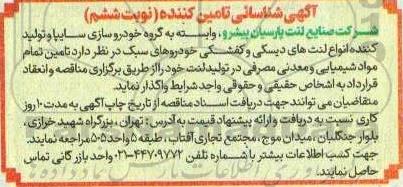 آگهی شناسائی تامین کننده (نوبت ششم)
شرکت صنایع لنت پارسیان پیشرو، وابسته به گروه خودروسازی سایپا و تولید
کننده انواع لنت های دیسکی و کفشکی خودروهای سبک در نظر دارد تامین تمام
مواد شیمیایی و معدنی مصرفی در تولید لنت خود را از طریق برگزاری مناقصه و انعقاد
قرارداد به اشخاص حقیقی و حقوقی واجد شرایط واگذار نماید.
متقاضیان می توانند جهت دریافت اسناد مناقصه از تاریخ چاپ آگهی به مدت ۱۰ روز
کاری نسبت به دریافت و ارائه پیشنهاد قیمت به آدرس: تهران، بزرگراه شهید خرازی،
بلوار جنگلبان، میدان موج، مجتمع تجاری آفتاب، طبقه ۵ واحد ۵۰۵ مراجعه نمایند.
جهت کسب اطلاعات بیشتر با شماره تلفن ۴۴۷۰۹۷۷۲-۰۲۱ واحد بازرگانی تماس
حاصل نمایند.